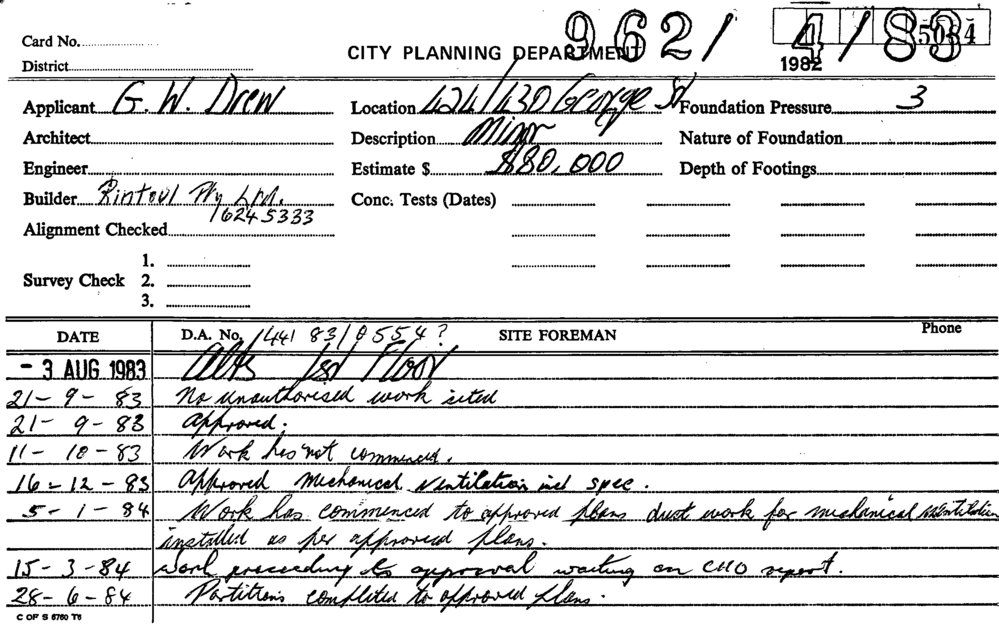 9621/4/83
5064
Card No.
CITY PLANNING DEPARTMENT
1982
District
Applicant G. W. Drew Location 424/430 George St Foundation Pressure 3
Architect Description Minor Nature of Foundation
Engineer Estimate $ $80,000 Depth of Footings
Builder Rintoul Pty Ltd. Conc. Tests (Dates)
6245333
Alignment Checked
1.
Survey Check 2.
3.
DATE D.A. No. 1441 83/0554? SITE FOREMAN Phone
- 3 AUG 1983 Alts 1st Floor
21-9-83 No unauthorised work sited
21-9-83 Approved.
11-10-83 Work has not commenced.
16-12-83 Approved mechanical ventilation incl spec.
5-1-84 Work has commenced to approved plans duct work for mechanical ventilation
installed as per approved plans.
15-3-84 Work proceeding to approval waiting on CHO report.
28-6-84 Partitions completed to approved plans.
C OF S 6760 T6